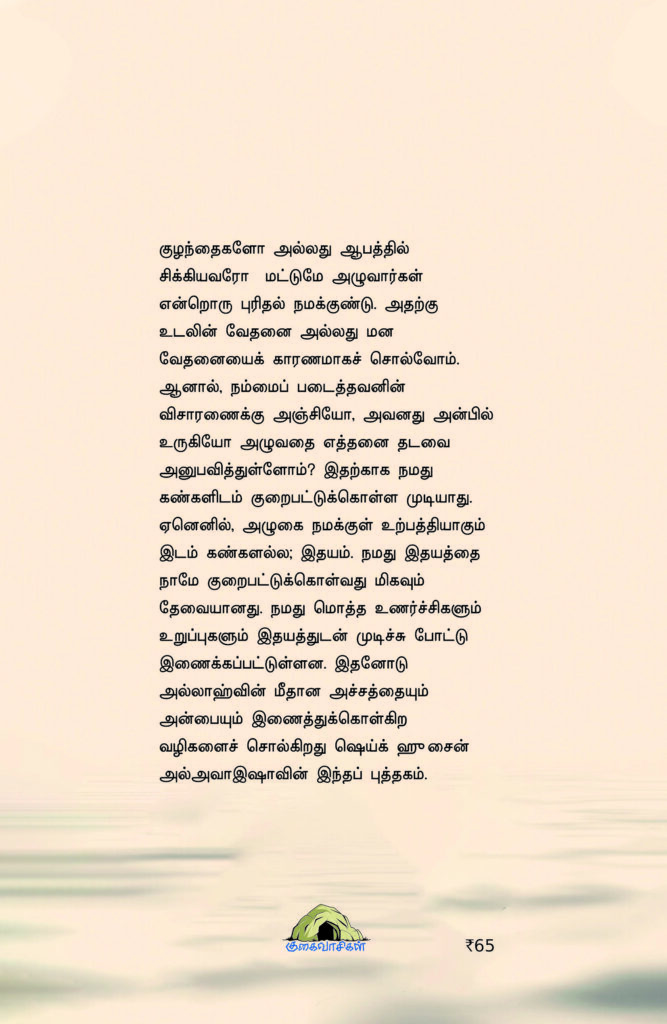 குழந்தைகளோ அல்லது ஆபத்தில்
சிக்கியவரோ மட்டுமே அழுவார்கள்
என்றொரு புரிதல் நமக்குண்டு. அதற்கு
உடலின் வேதனை அல்லது மன
வேதனையைக் காரணமாகச் சொல்வோம்.
ஆனால், நம்மைப் படைத்தவனின்
விசாரணைக்கு அஞ்சியோ, அவனது அன்பில்
உருகியோ அழுவதை எத்தனை தடவை
அனுபவித்துள்ளோம்? இதற்காக நமது
கண்களிடம் குறைபட்டுக்கொள்ள முடியாது.
ஏனெனில், அழுகை நமக்குள் உற்பத்தியாகும்
இடம் கண்களல்ல; இதயம். நமது இதயத்தை
நாமே குறைபட்டுக்கொள்வது மிகவும்
தேவையானது. நமது மொத்த உணர்ச்சிகளும்
உறுப்புகளும் இதயத்துடன் முடிச்சு போட்டு
இணைக்கப்பட்டுள்ளன. இதனோடு
அல்லாஹ்வின் மீதான அச்சத்தையும்
அன்பையும் இணைத்துக்கொள்கிற
வழிகளைச் சொல்கிறது ஷெய்க் ஹுசைன்
அல்அவாஇஷாவின் இந்தப் புத்தகம்.
குகைவாசிகள்
₹65